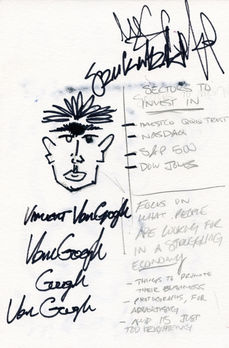 SECTORS TO
INVEST IN
- INVESCO QQQ TRUST
- NASDAQ
- S&P 500
- DOW JONES
Vincent VanGogh
VanGogh
Gough
Van Gough
FOCUS ON
WHAT PEOPLE
ARE LOOKING FOR
IN A STRUGGLING
ECONOMY
- THINGS TO PROMOTE
THEIR BUSINESS
- PHOTOGRAPHS FOR
ADVERTISING
- AND IS JUST
TOO FRIGHTENING